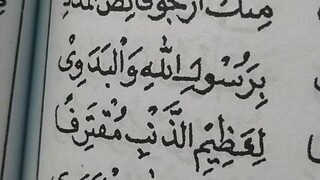 مِنْكَ أَرْجُو فَائِضَ لْمَدَدِ
بِرَسُولِ اللهِ وَالْبَدَوِىْ
لِعَظِيْمِ الذَّنْبِ مُقْتَرِفًا